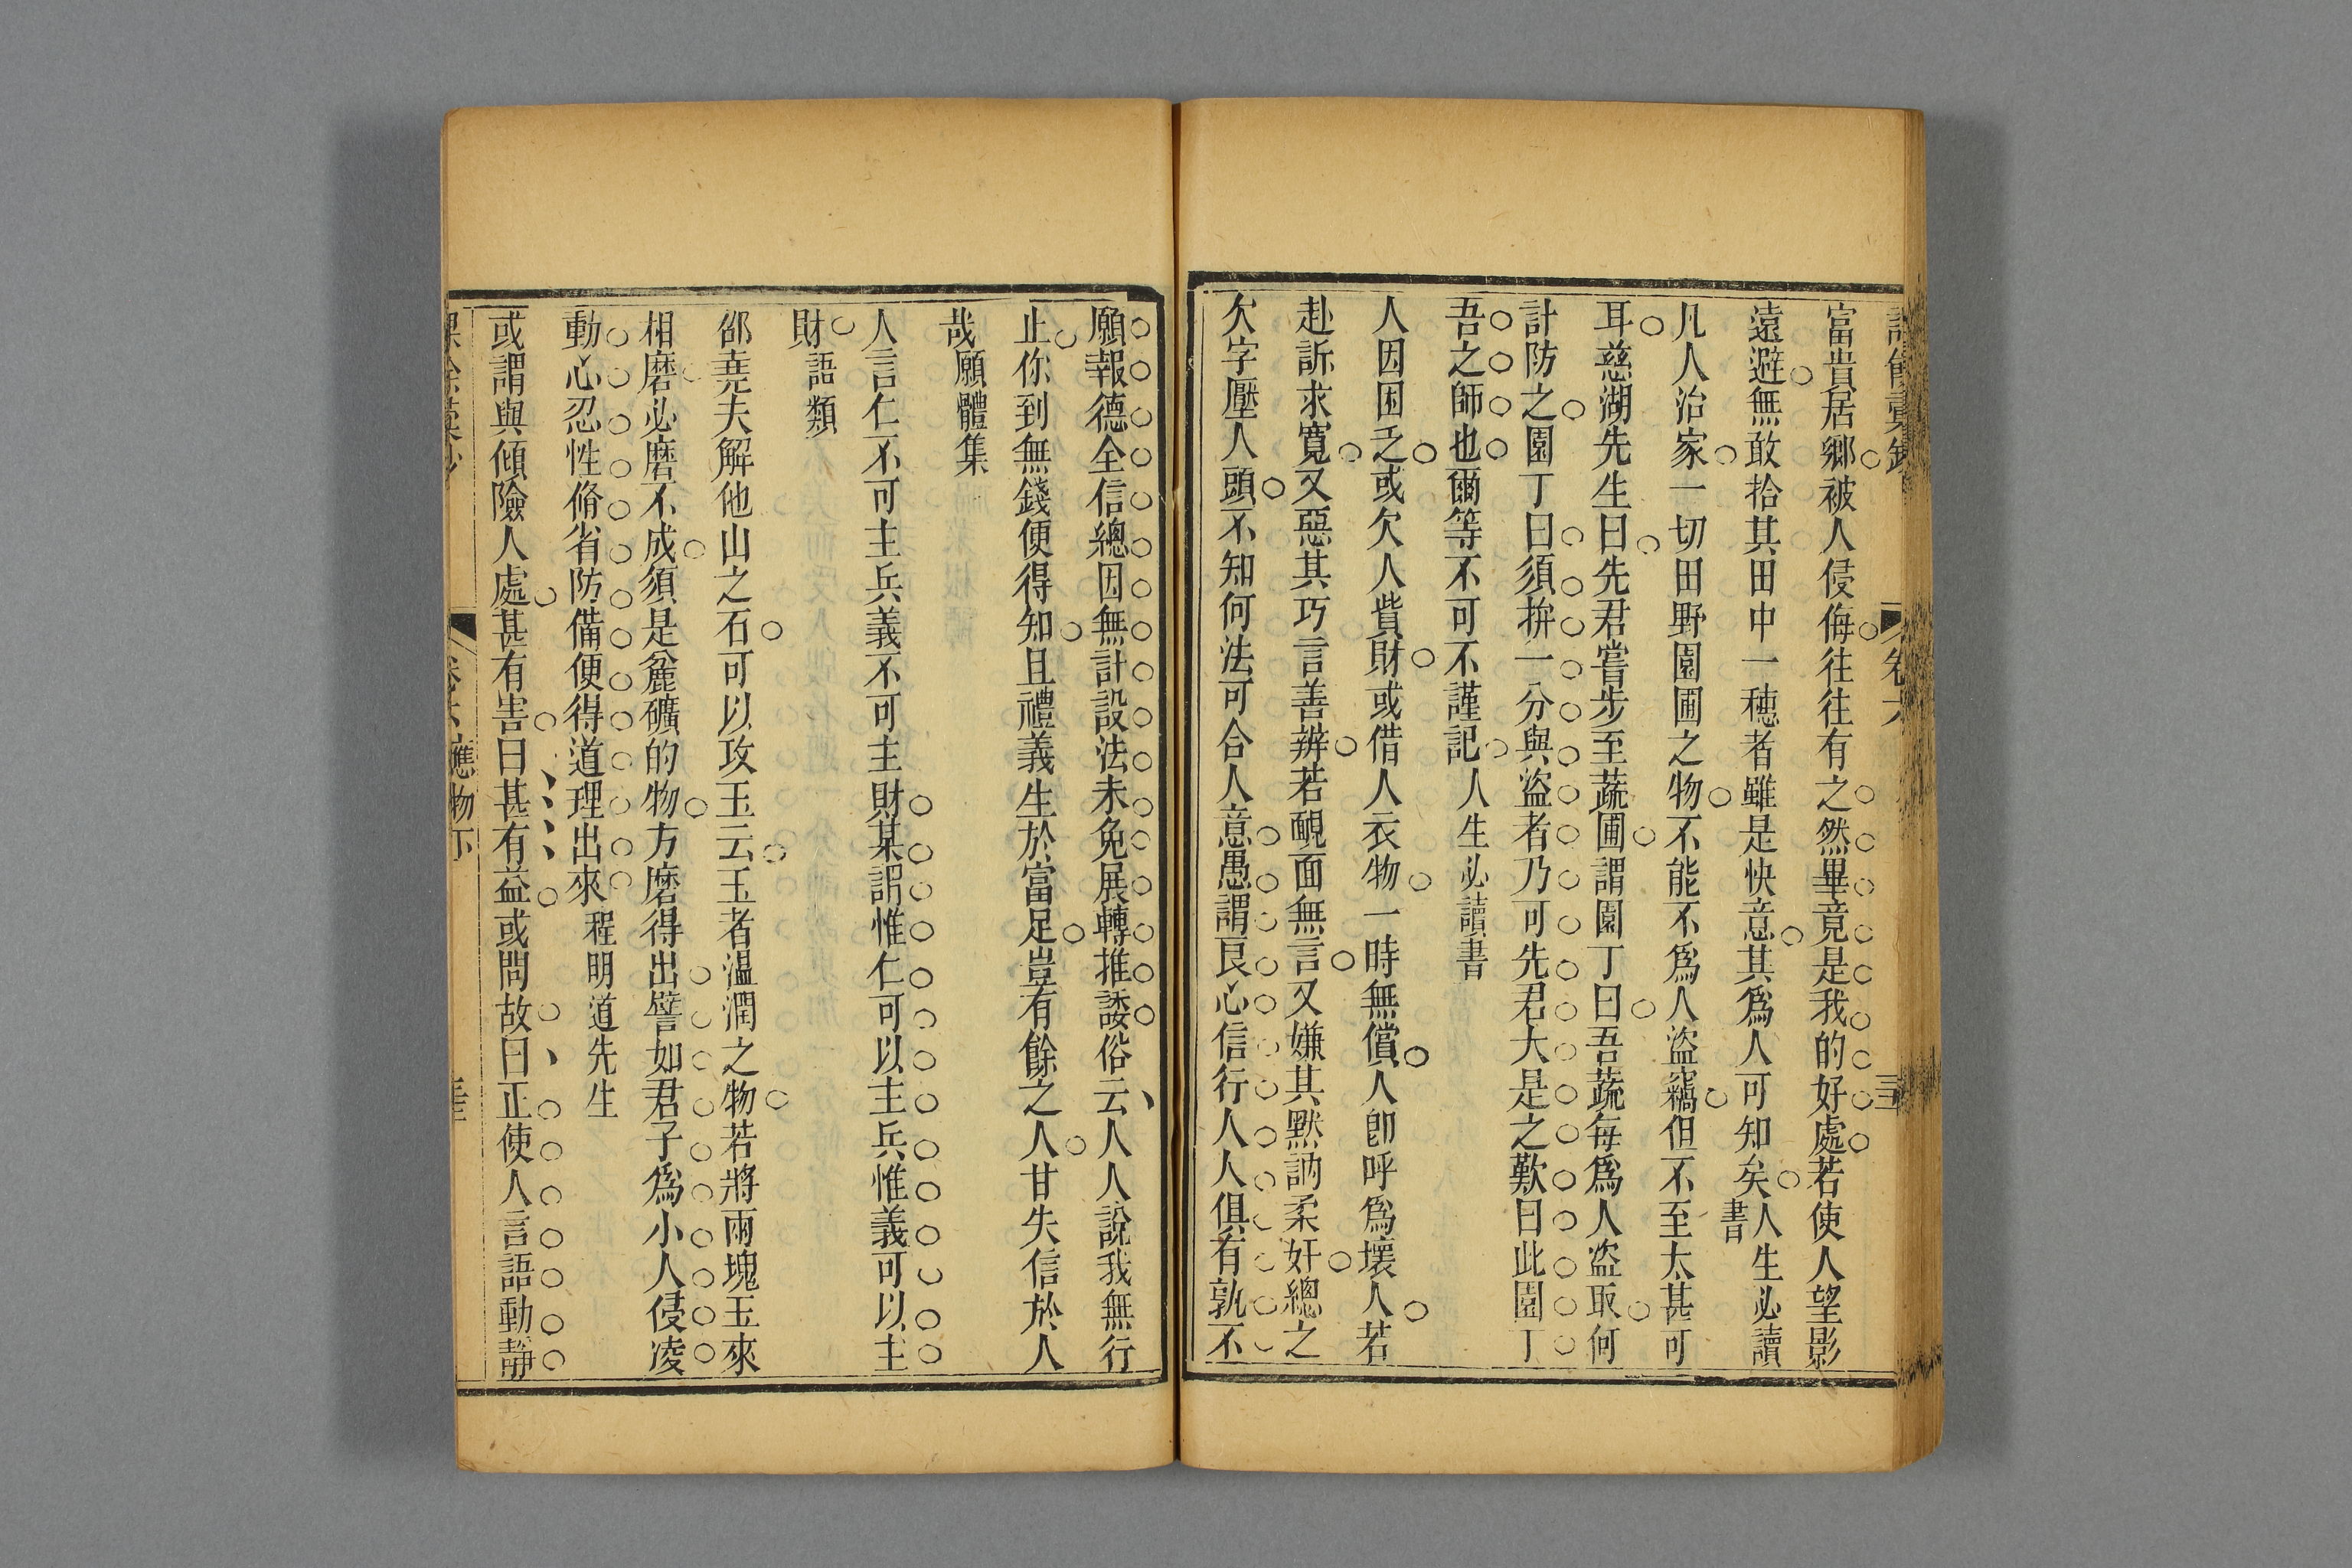 卷六
富貴居鄉被人侵侮往往有之然畢竟是我的好處若使人望影
遠避無敢拾其田中一穗者雖是快意其爲人可知矣人生必讀書
凡人治家一切田野園圃之物不能不爲人盜竊但不至太甚可
耳慈湖先生曰先君嘗步至蔬圃謂園丁曰吾蔬每爲人盜取何
計防之園丁曰須拚一分與盜者乃可先君大是之歎曰此園丁
吾之師也爾等不可不謹記人生必讀書
人因困乏或欠人貲財或借人衣物一時無償人卽呼爲壞人若
赴訴求寬又惡其巧言善辨若靦面無言又嫌其默訥柔奸總之
欠字壓人頭不知何法可合人意愚謂良心信行人人俱有孰不
願報德全信總因無計設法未免展轉推諉俗云人人說我無行
止你到無錢便得知且禮義生於富足豈有餘之人甘失信於人
哉願體集
人言仁不可主兵義不可主財某謂惟仁可以主兵惟義可以主
財語類
邵堯夫解他山之石可以攻玉云玉者温潤之物若將兩塊玉來
相磨必磨不成須是麄礦的物方磨得出譬如君子爲小人侵凌
動心忍性脩省防備便得道理出來程明道先生
或謂與傾險人處甚有害曰甚有益或問故曰正使人言語動靜
應物下